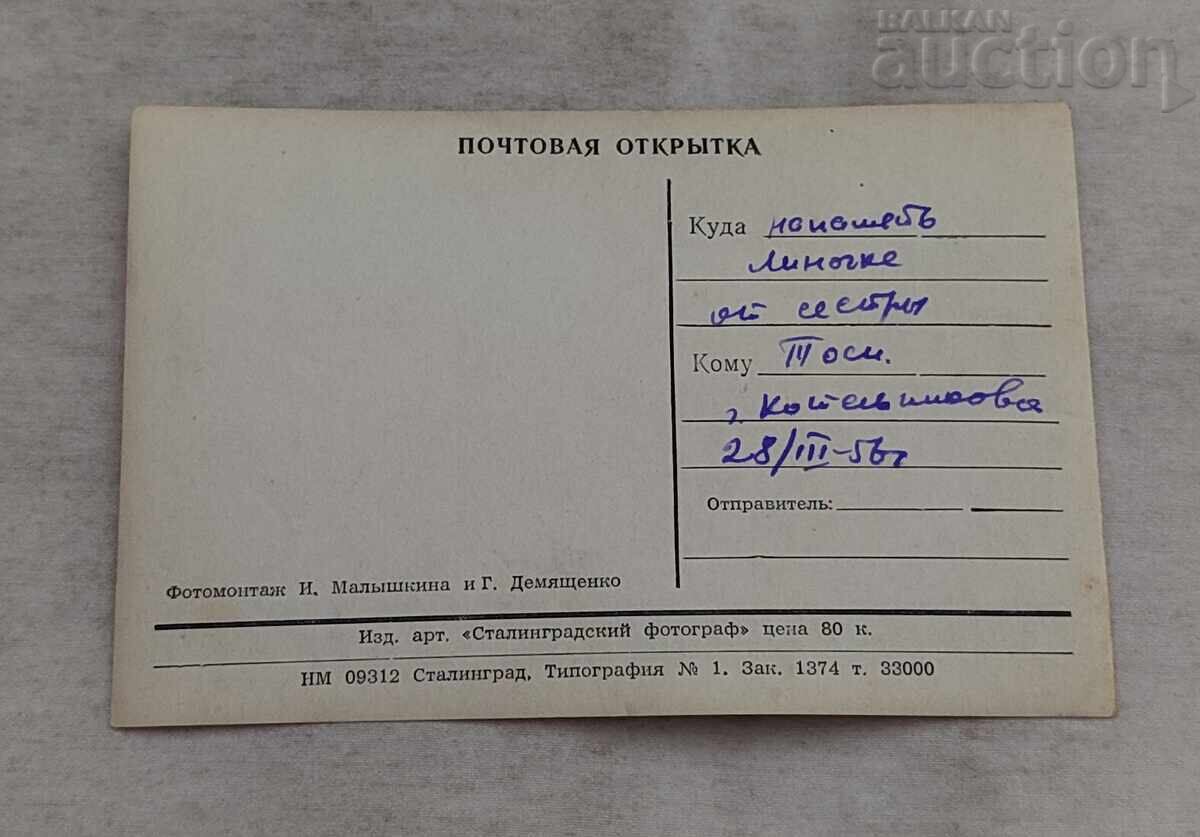 BALKAN
auction
ПОЧТОВАЯ ОТКРЫТКА
Куда напаметь
Линочке
от сестры
Кому Тоси.
г. Котельниково
28/III-56г
Отправитель:
Фотомонтаж И. Малышкина и Г. Демященко
Изд. арт. «Сталинградский фотограф» цена 80 к.
НМ 09312 Сталинград, Типография № 1. Зак. 1374 т. 33000